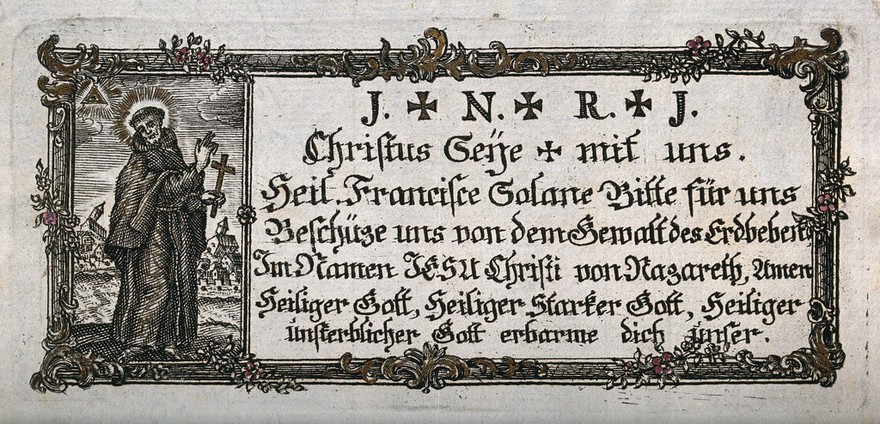 J. ✠ N. ✠ R. ✠ J.
Christus Seye ✠ mit uns.
Heil. Francisce Solane Bitte für uns
Beschüze uns von dem Gewalt des Erdbebens
Im Namen JESU Christi von Nazareth, Amen
Heiliger Gott, Heiliger Starker Gott, Heiliger
Unsterblicher Gott erbarme dich unser.